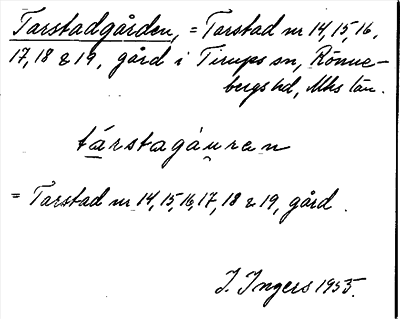 Tarstadgården, = Tarstad nr 14, 15, 16,
17, 18 & 19, gård i Tirups sn, Rönne-
bergs hd, Mhs län.
társtagáuran
= Tarstad nr 14, 15, 16, 17, 18 & 19, gård.
I. Ingers 1955.